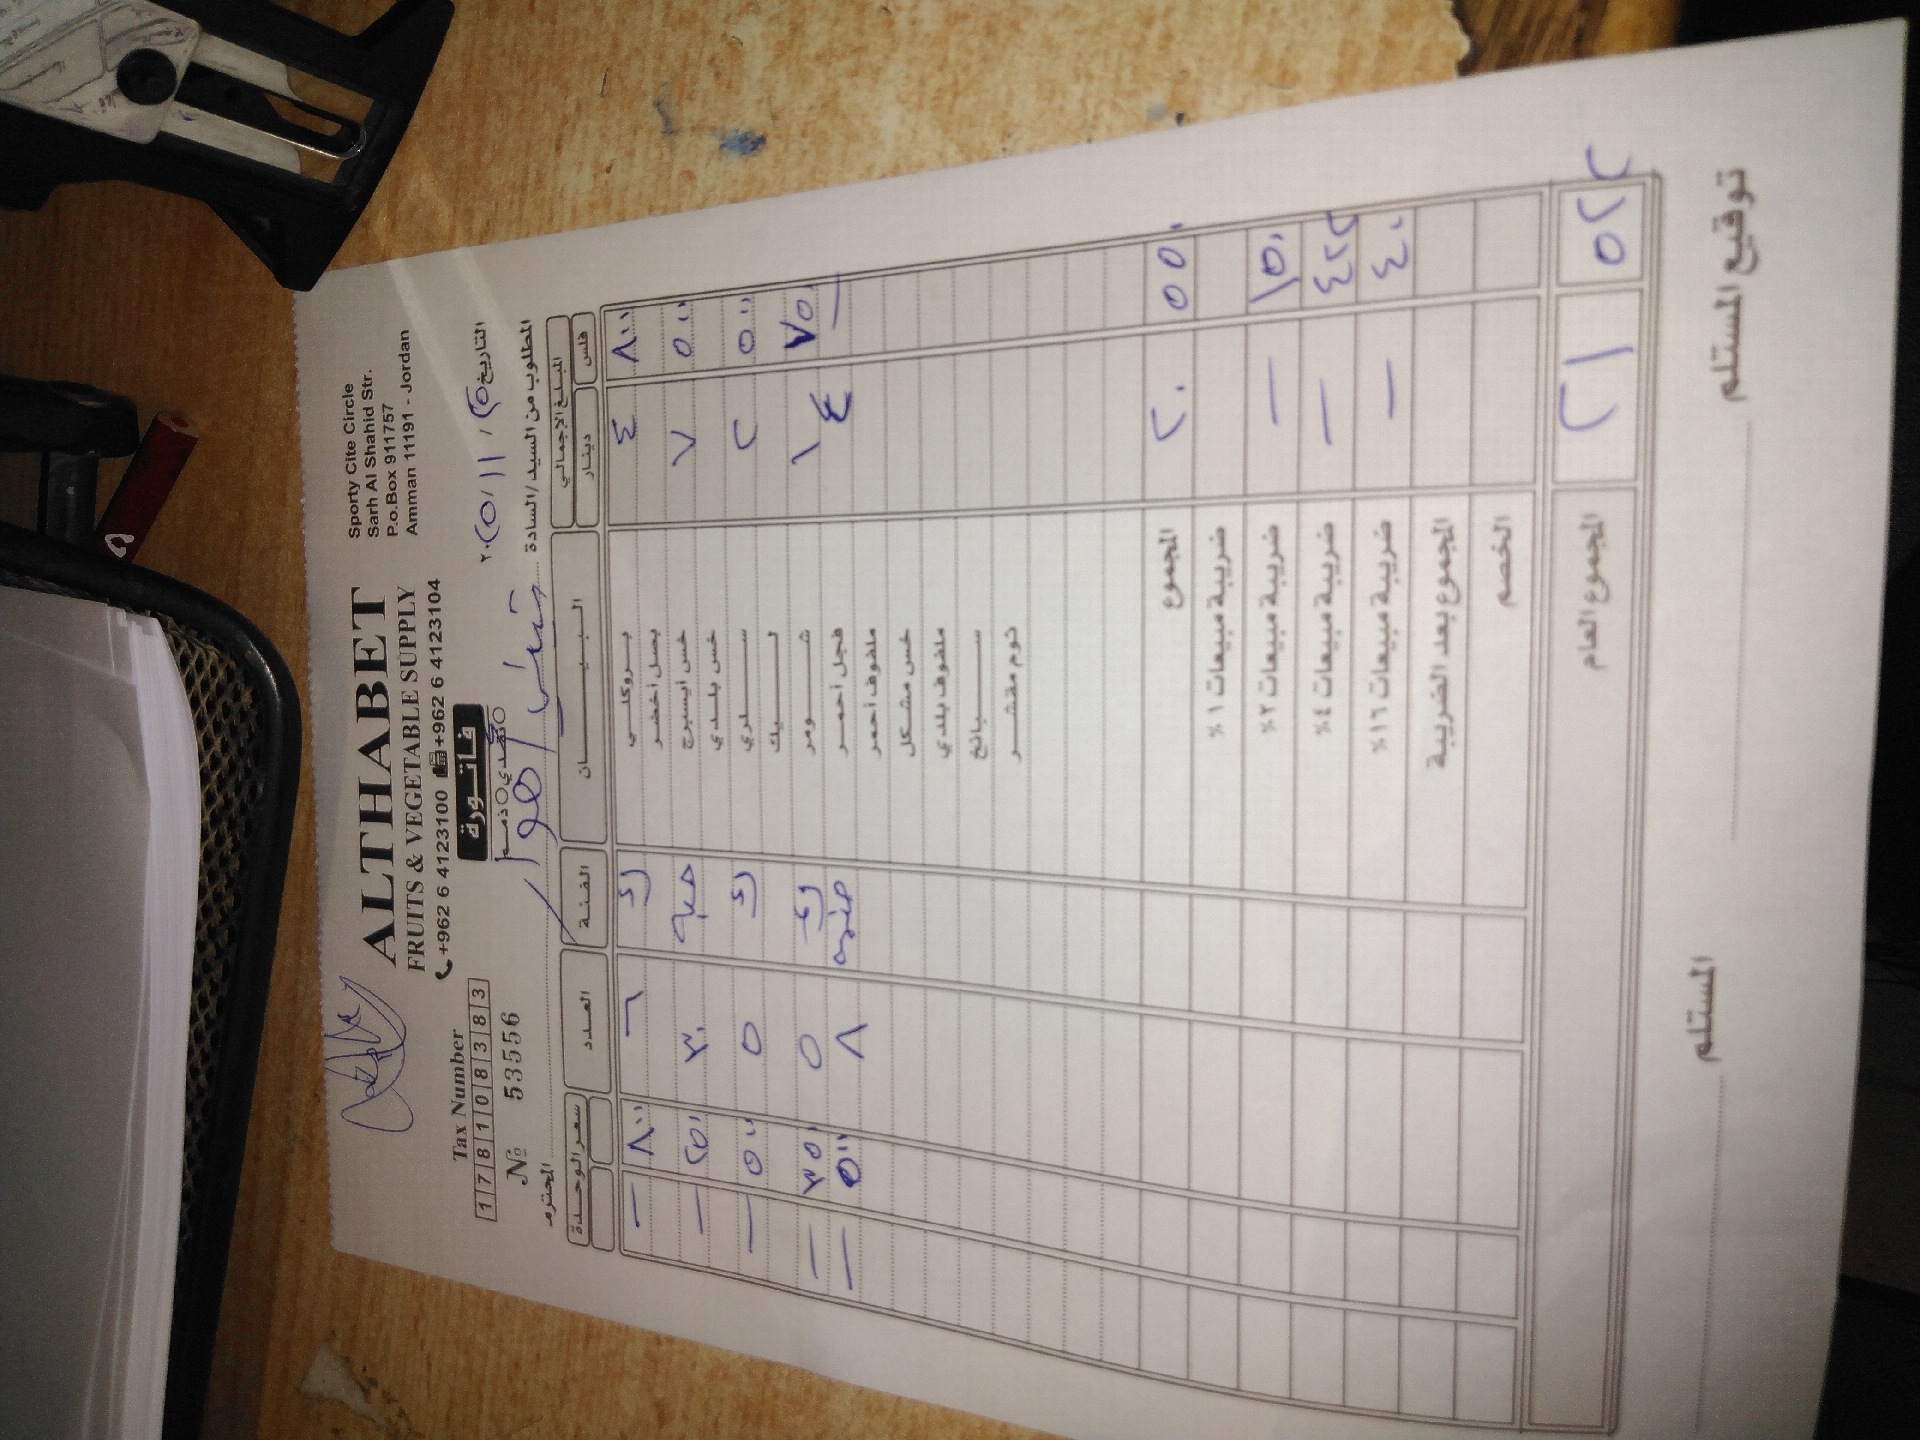 ALTHABET
FRUITS & VEGETABLE SUPPLY
+962 6 4123100 +962 6 4123104
Sporty Cite Circle
Sarh Al Shahid Str.
P.o.Box 911757
Amman 11191 - Jordan
Tax Number
1 7 8 1 0 8 3 8 3
№ 53556
فاتورة
نقدي ذمم
التاريخ ٥ / ١١ / ٢٠٢٥
المطلوب من السيد / السادة المحترم
المبلغ الإجمالي البيـــــان الفئة العدد سعر الوحدة
دينار فلس
٤ ٨٠٠ بروكلي ك ٦ — ٨٠٠
بصل أخضر
٧ ٥٠٠ خس ايسبرج حبة ٣٠ — ٢٥٠
خس بلدي
٢ ٥٠٠ سـلري ك ٥ — ٥٠٠
لـيك
١ ٧٥٠ شـومر ك ٥ — ٣٥٠
٤ — فجل أحمر ضمة ٨ — ٥٠٠
ملفوف أحمر
خس مشكل
ملفوف بلدي
سـبانخ
ثوم مقشر
٢٠ ٥٥٠ المجموع
ضريبة مبيعات ١%
— ١٥٠ ضريبة مبيعات ٢%
— ٤٢٢ ضريبة مبيعات ٤%
— ٤٠٠ ضريبة مبيعات ١٦%
المجموع بعد الضريبة
الخصم
٢١ ٥٢٢ المجموع العام
توقيع المستلم المستلم